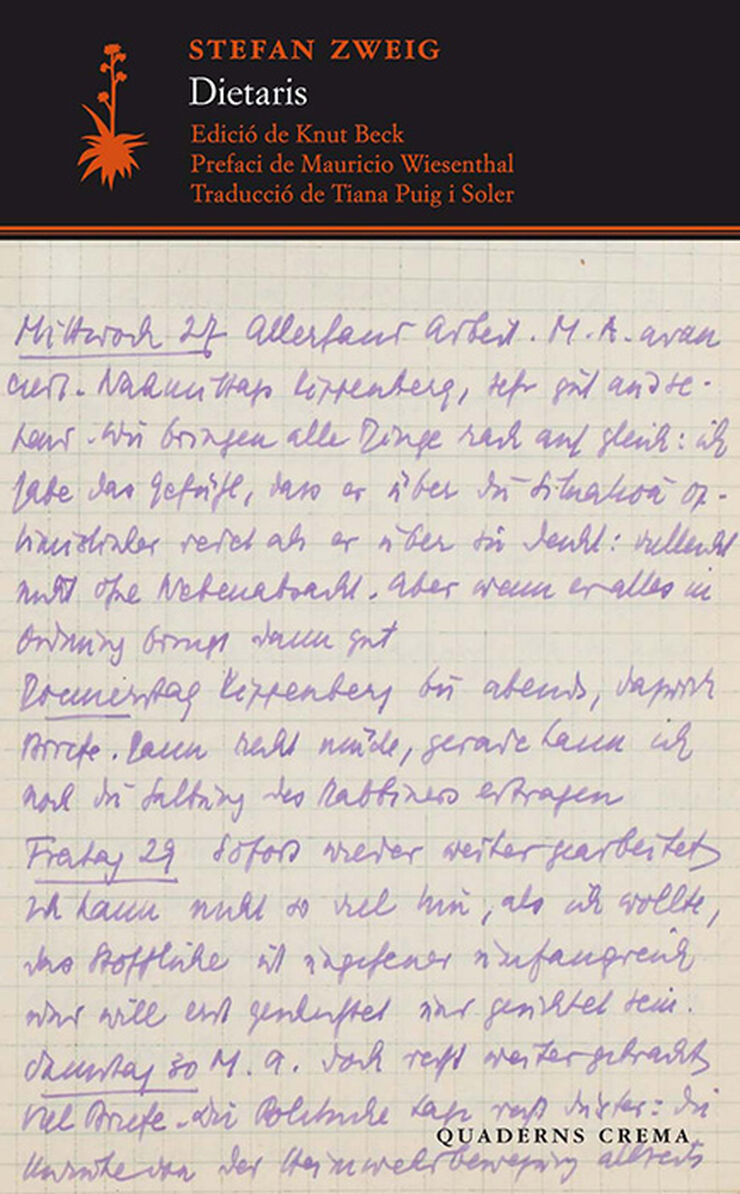 STEFAN ZWEIG
Dietaris
Edició de Knut Beck
Prefaci de Mauricio Wiesenthal
Traducció de Tiana Puig i Soler
Mittwoch 27 Allerhand Arbeit. M. A. avan
ciert. Nachmittags Kippenberg, sehr gut
Wir bringen alle Dinge rasch auf gleich: ich
habe das Gefühl, dass er über die Situation op-
timistischer redet als er über sie denkt: vielleicht
nicht ohne Nebenabsicht. Aber wenn er alles in
Ordnung bringt dann gut
Donnerstag Kippenberg bis abends, dazwisch
Briefe. Dann recht müde, gerade kann ich
noch die Salbung des Rabbiners ertragen
Freitag 29 Sofort wieder weitergearbeitet
Ich kann nicht so viel tun, als ich wollte,
das Stoffliche ist ungeheuer umfangreich
und will erst gesichtet sein.
Samstag 30 M. A. doch recht weitergebracht
Viel Briefe. Die Politische Lage recht düster: die
der Heimwehrbewegung allseits
QUADERNS CREMA